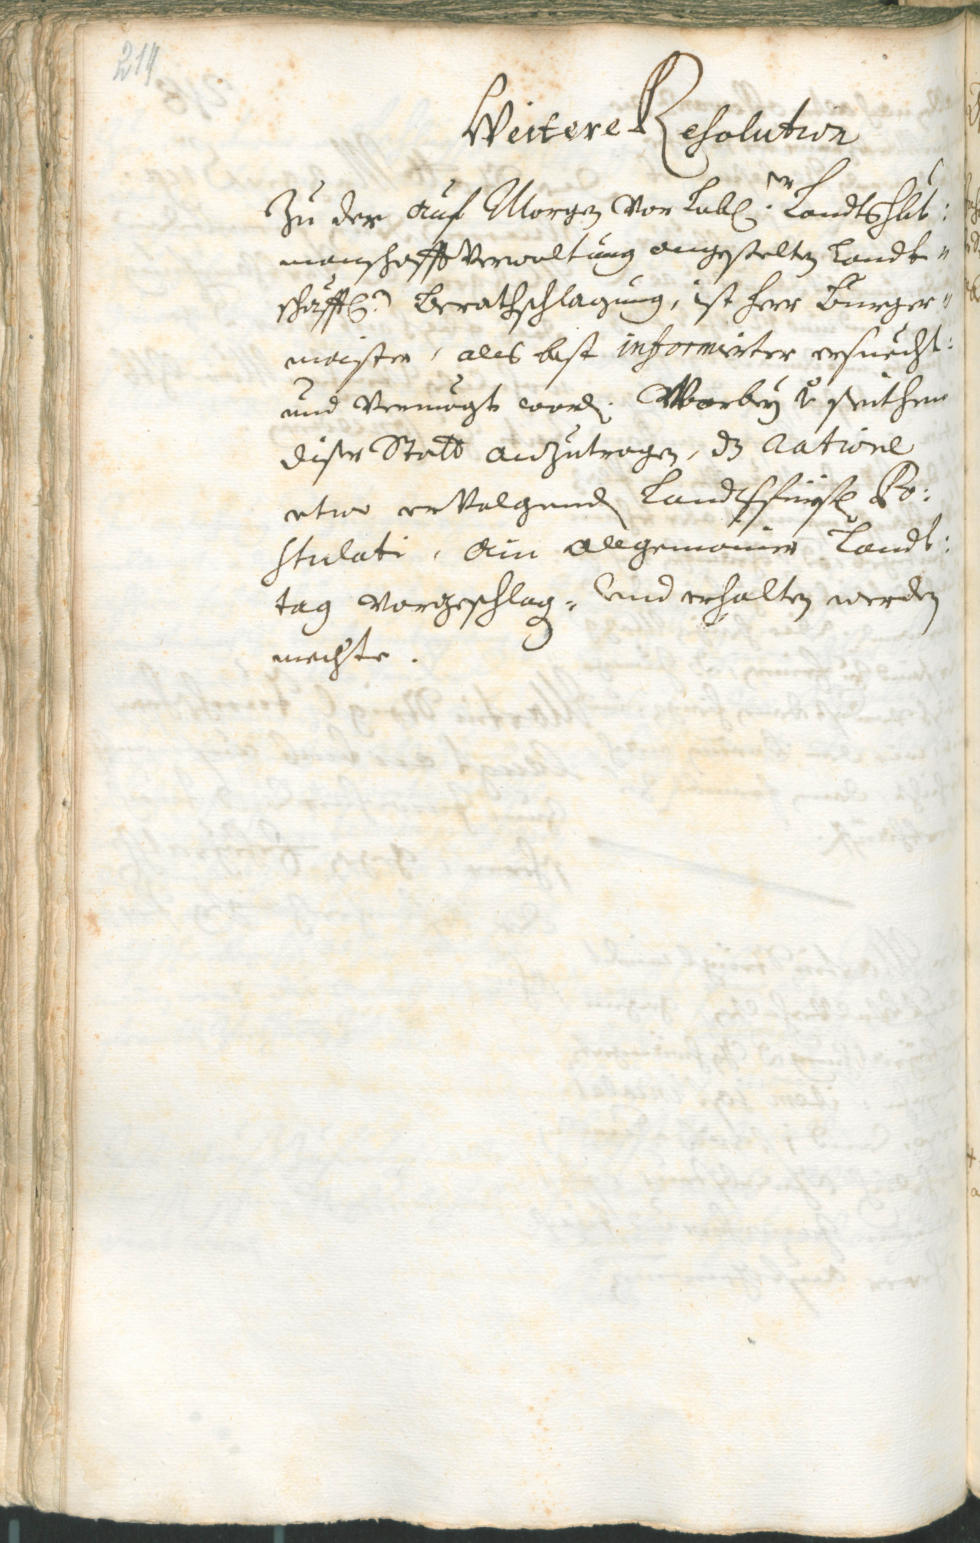 214
Weitere Resolution
Zu der auf Morgen vor Lobl: r Landtshaubt:
manschafft Verwaltung angestelten Landt"
schäfftl: n Berathschlagung, ist herr Burger"
maister, als best informirter ersuecht:
und vermögt word. Warbey seithen
diser Statt anzutragen, dz ratione
etwo ervolgend Landtsfürstl Po:
stulati, ain allgemainer Landt:
tag vorgeschlag= und erhalten werden
mechte.